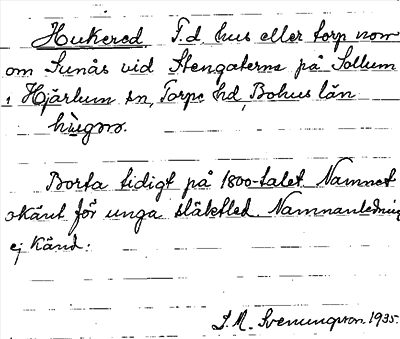 Hukered. F.d. hus eller torp norr
om Sunås vid Stengaterna på Sollum
i Hjärtum sn, Torpe hd, Bohus län
Borta tidigt på 1800-talet. Namnet
okänt för unga släktled. Namnanledning
ej känd.
S. M. Svenungsson. 1935.